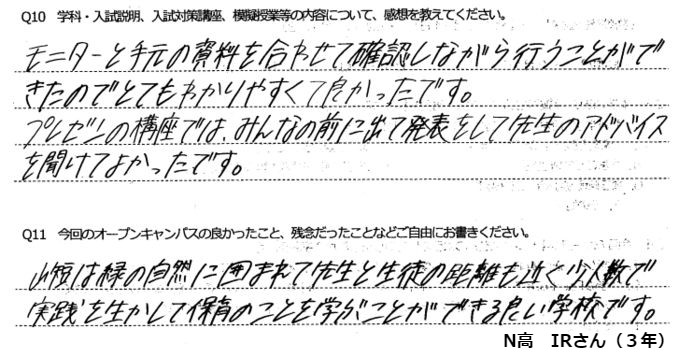 Q10　学科・入試説明、入試対策講座、模擬授業等の内容について、感想を教えてください。
モニターと手元の資料を合わせて確認しながら行うことがで
きたのでとてもわかりやすくて良かったです。
プレゼンの構座では、みんなの前に出て発表をして先生のアドバイス
を聞けてよかったです。
Q11　今回のオープンキャンパスの良かったこと、残念だったことなどご自由にお書きください。
山短は緑の自然に囲まれて先生と生徒の距離も近く少人数で
実践を生かして保育のことを学ぶことができる良い学校です。
N高　IRさん（３年）